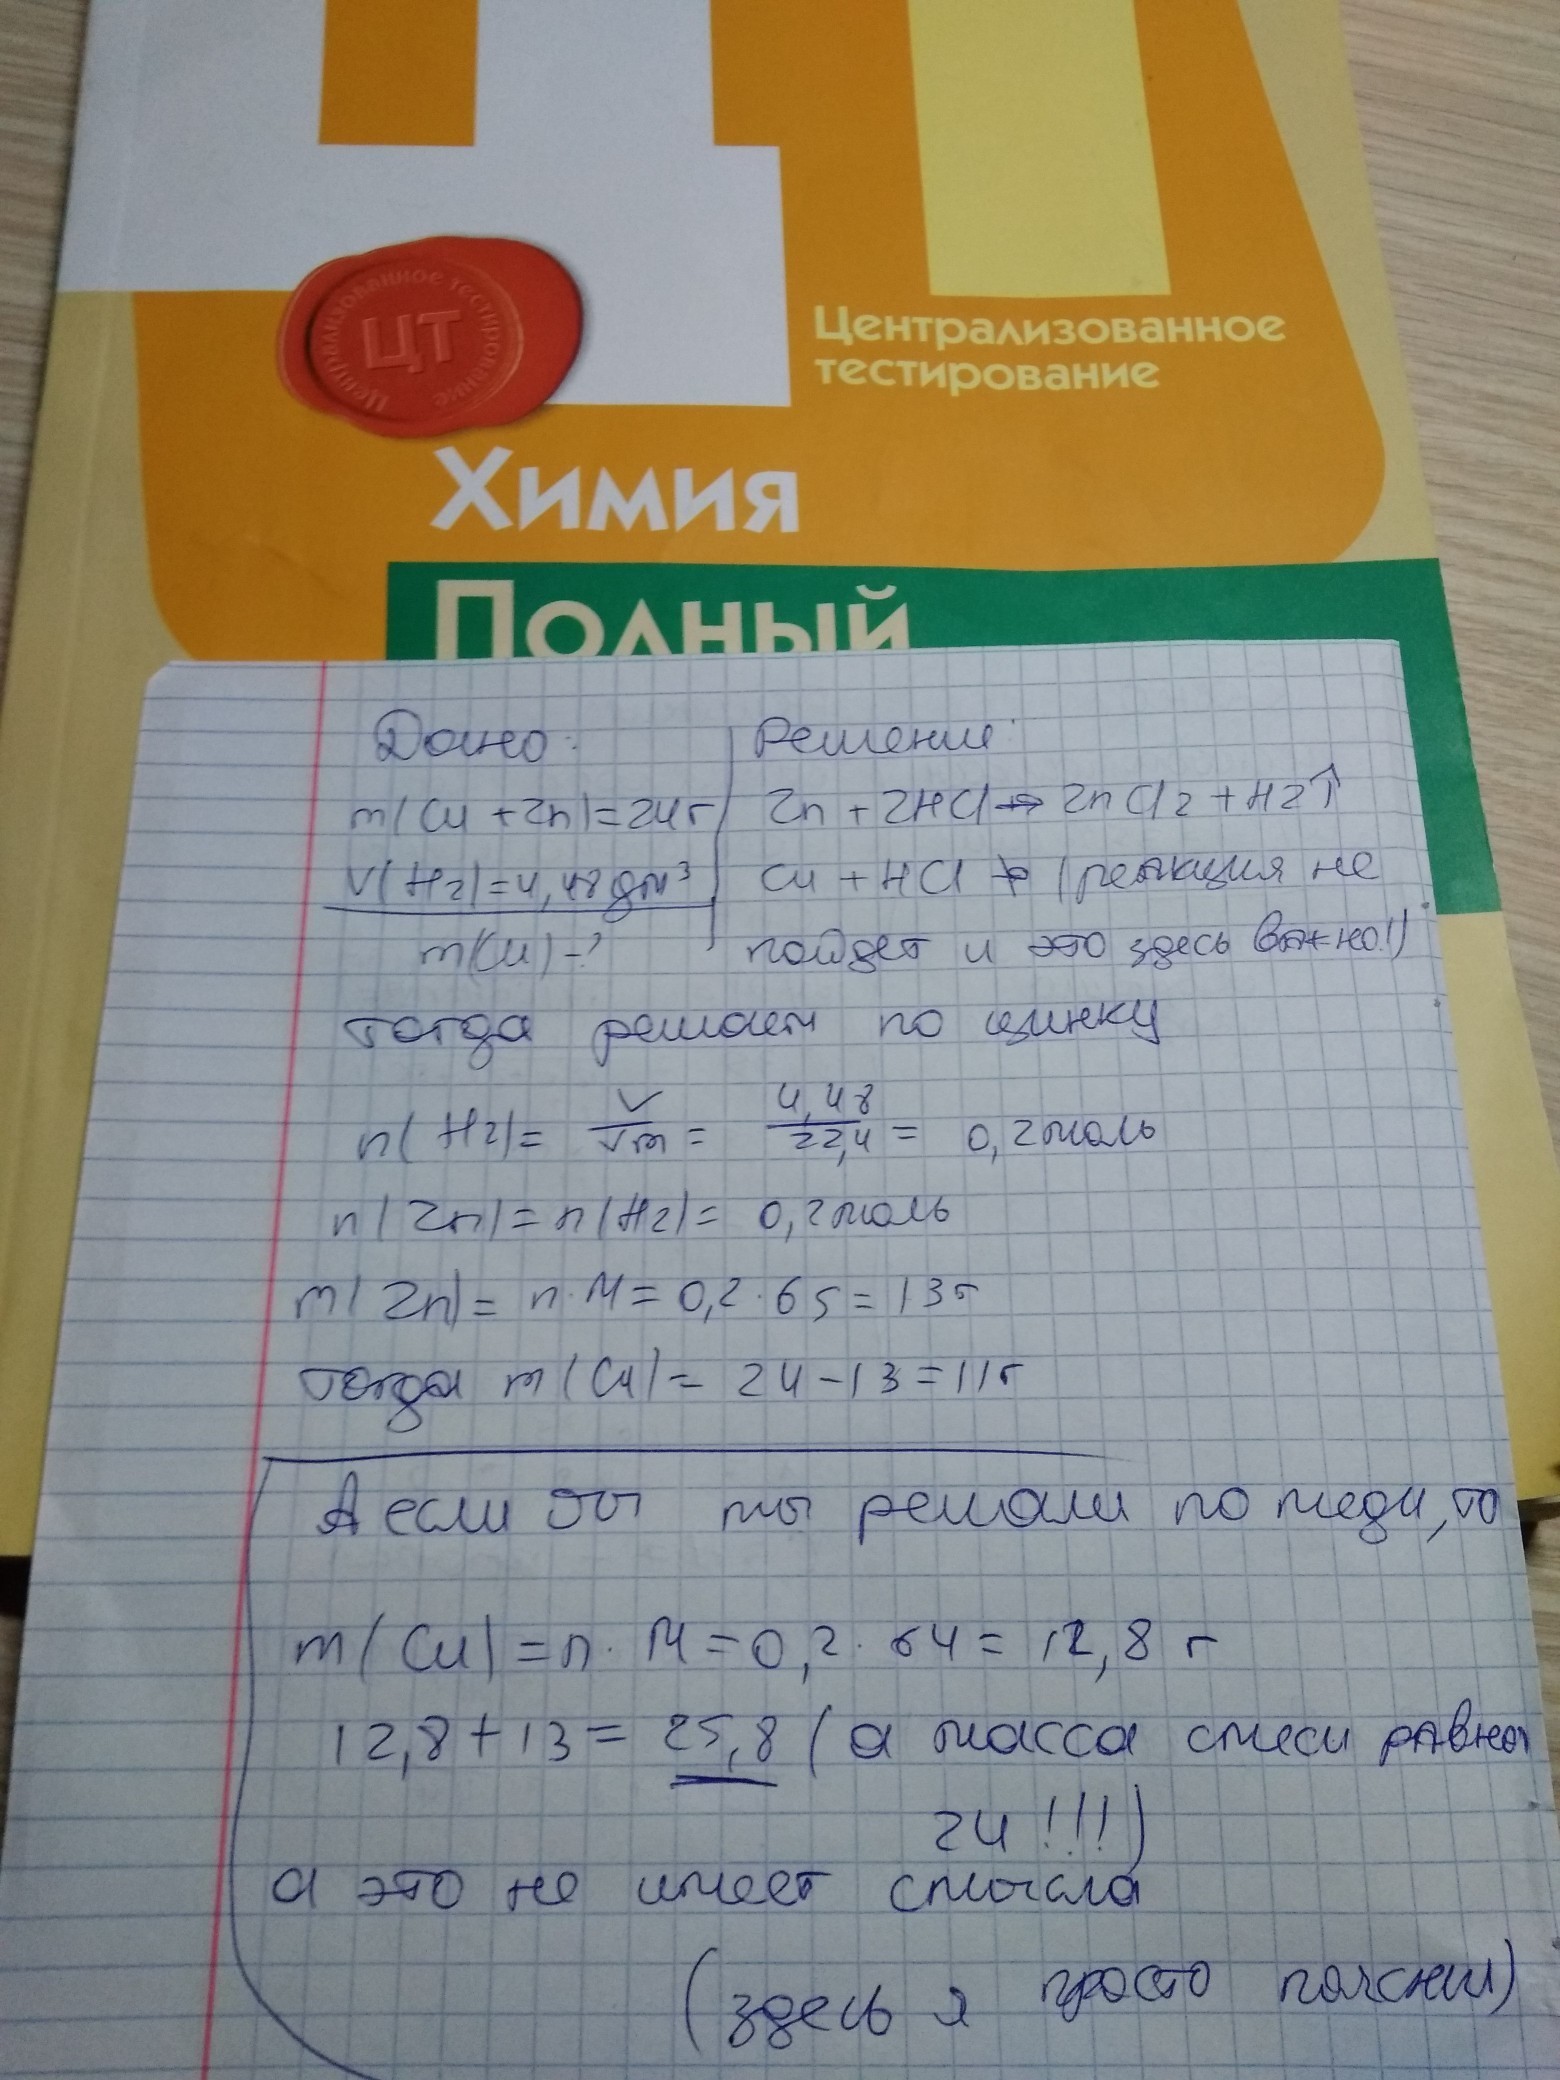 Централизованное тестирование
ЦТ
Централизованное
тестирование
Химия
Полный
Дано:
Решение:
m(Cu + Zn) = 24 г
Zn + 2HCl → ZnCl2 + H2↑
V(H2) = 4,48 дм³
Cu + HCl ↛ (реакция не
m(Cu) - ?
пойдет и это здесь важно!)
тогда решаем по цинку
n(H2) = V/Vm = 4,48/22,4 = 0,2 моль
n(Zn) = n(H2) = 0,2 моль
m(Zn) = n·M = 0,2·65 = 13 г
тогда m(Cu) = 24 - 13 = 11 г
А если бы мы решали по меди, то
m(Cu) = n·M = 0,2·64 = 12,8 г
12,8 + 13 = 25,8 (а масса смеси равна
24!!!)
а это не имеет смысла
(здесь я просто пояснил)